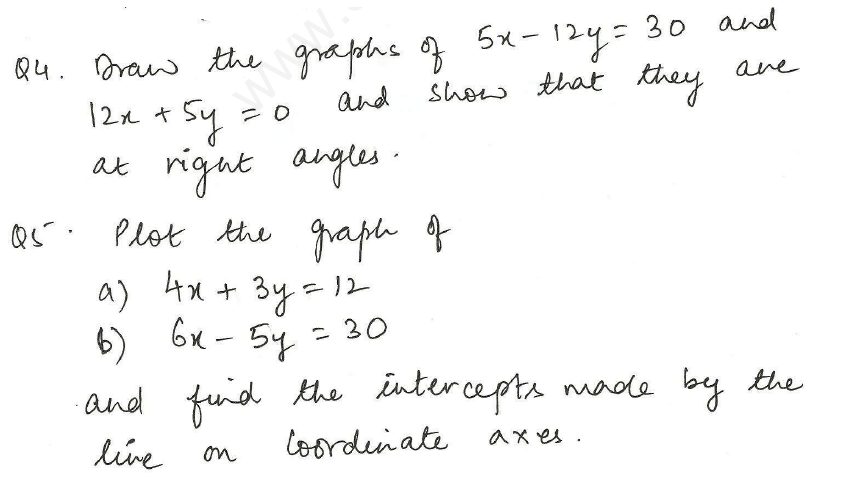 Q4. Draw the graphs of 5x - 12y = 30 and
12x + 5y = 0 and show that they are
at right angles.
Q5. Plot the graph of
a) 4x + 3y = 12
b) 6x - 5y = 30
and find the intercepts made by the
line on coordinate axes.